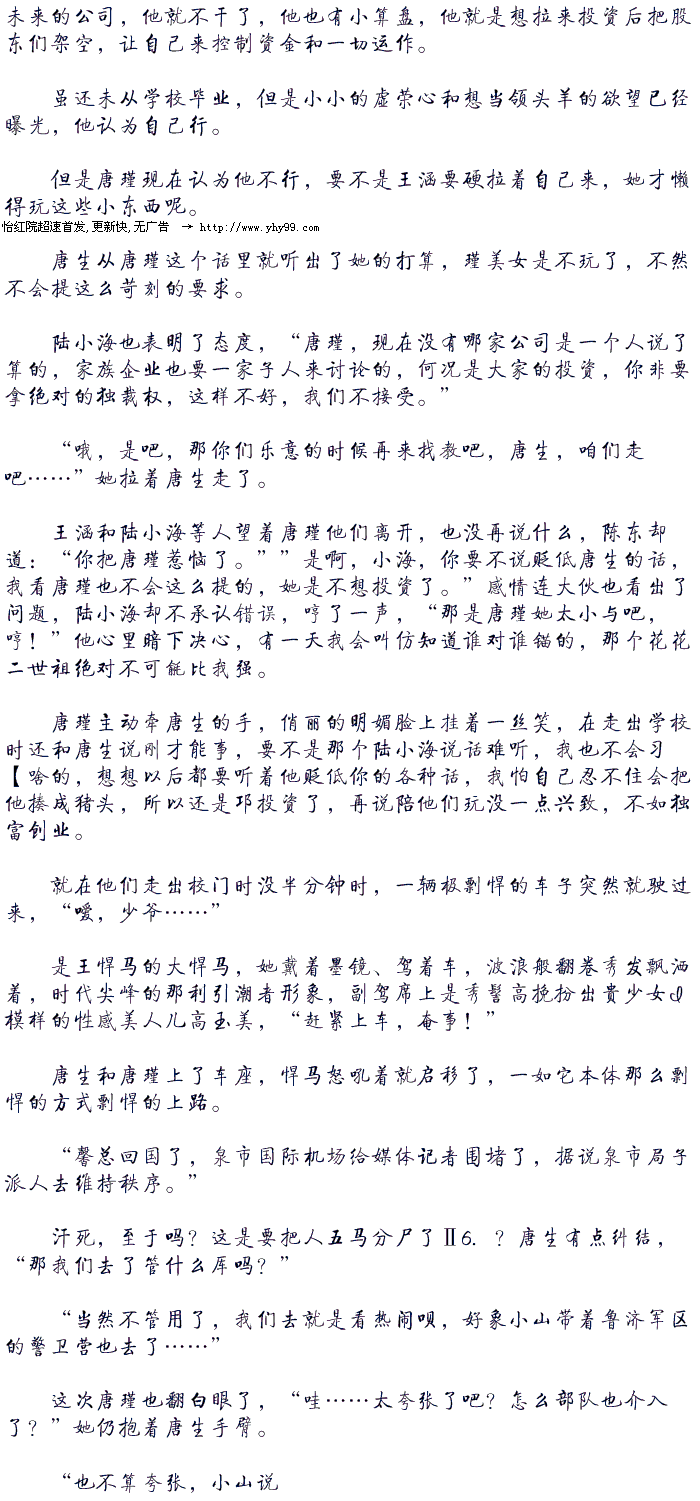 未来的公司，他就不干了，他也有小算盘，他就是想拉来投资后把股
东们架空，让自己来控制资金和一切运作。
虽还未从学校毕业，但是小小的虚荣心和想当领头羊的欲望已经
曝光，他认为自己行。
但是唐瑾现在认为他不行，要不是王涵要硬拉着自己来，她才懒
得玩这些小东西呢。
怡红院超速首发,更新快,无广告 → http://www.yhy99.com
唐生从唐瑾这个话里就听出了她的打算，瑾美女是不玩了，不然
不会提这么苛刻的要求。
陆小海也表明了态度，“唐瑾，现在没有哪家公司是一个人说了
算的，家族企业也要一家子人来讨论的，何况是大家的投资，你非要
拿绝对的独裁权，这样不好，我们不接受。”
“哦，是吧，那你们乐意的时候再来找教吧，唐生，咱们走
吧……”她拉着唐生走了。
王涵和陆小海等人望着唐瑾他们离开，也没再说什么，陈东却
道：“你把唐瑾惹恼了。””是啊，小海，你要不说贬低唐生的话，
我看唐瑾也不会这么提的，她是不想投资了。”感情连大伙也看出了
问题，陆小海却不承认错误，哼了一声，“那是唐瑾她太小与吧，
哼！”他心里暗下决心，有一天我会叫仿知道谁对谁错的，那个花花
二世祖绝对不可能比我强。
唐瑾主动牵唐生的手，俏丽的明媚脸上挂着一丝笑，在走出学校
时还和唐生说刚才能事，要不是那个陆小海说话难听，我也不会习
【啥的，想想以后都要听着他贬低你的各种话，我怕自己忍不住会把
他揍成猪头，所以还是邛投资了，再说陪他们玩没一点兴致，不如独
富创业。
就在他们走出校门时没半分钟时，一辆极剽悍的车子突然就驶过
来，“嗳，少爷……”
是王悍马的大悍马，她戴着墨镜、驾着车，波浪般翻卷秀发飘洒
着，时代尖峰的那利引潮者形象，副驾席上是秀髻高挽扮出贵少女d
模样的性感美人儿高玉美，“赶紧上车，奋事！”
唐生和唐瑾上了车座，悍马怒吼着就启移了，一如它本体那么剽
悍的方式剽悍的上路。
“馨总回国了，泉市国际机场给媒体记者围堵了，据说泉市局子
派人去维持秩序。”
汗死，至于吗？这是要把人五马分尸了Ⅱ6．？唐生有点纠结，
“那我们去了管什么厍吗？”
“当然不管用了，我们去就是看热闹呗，好象小山带着鲁济军区
的警卫营也去了……”
这次唐瑾也翻白眼了，“哇……太夸张了吧？怎么部队也介入
了？”她仍抱着唐生手臂。
“也不算夸张，小山说